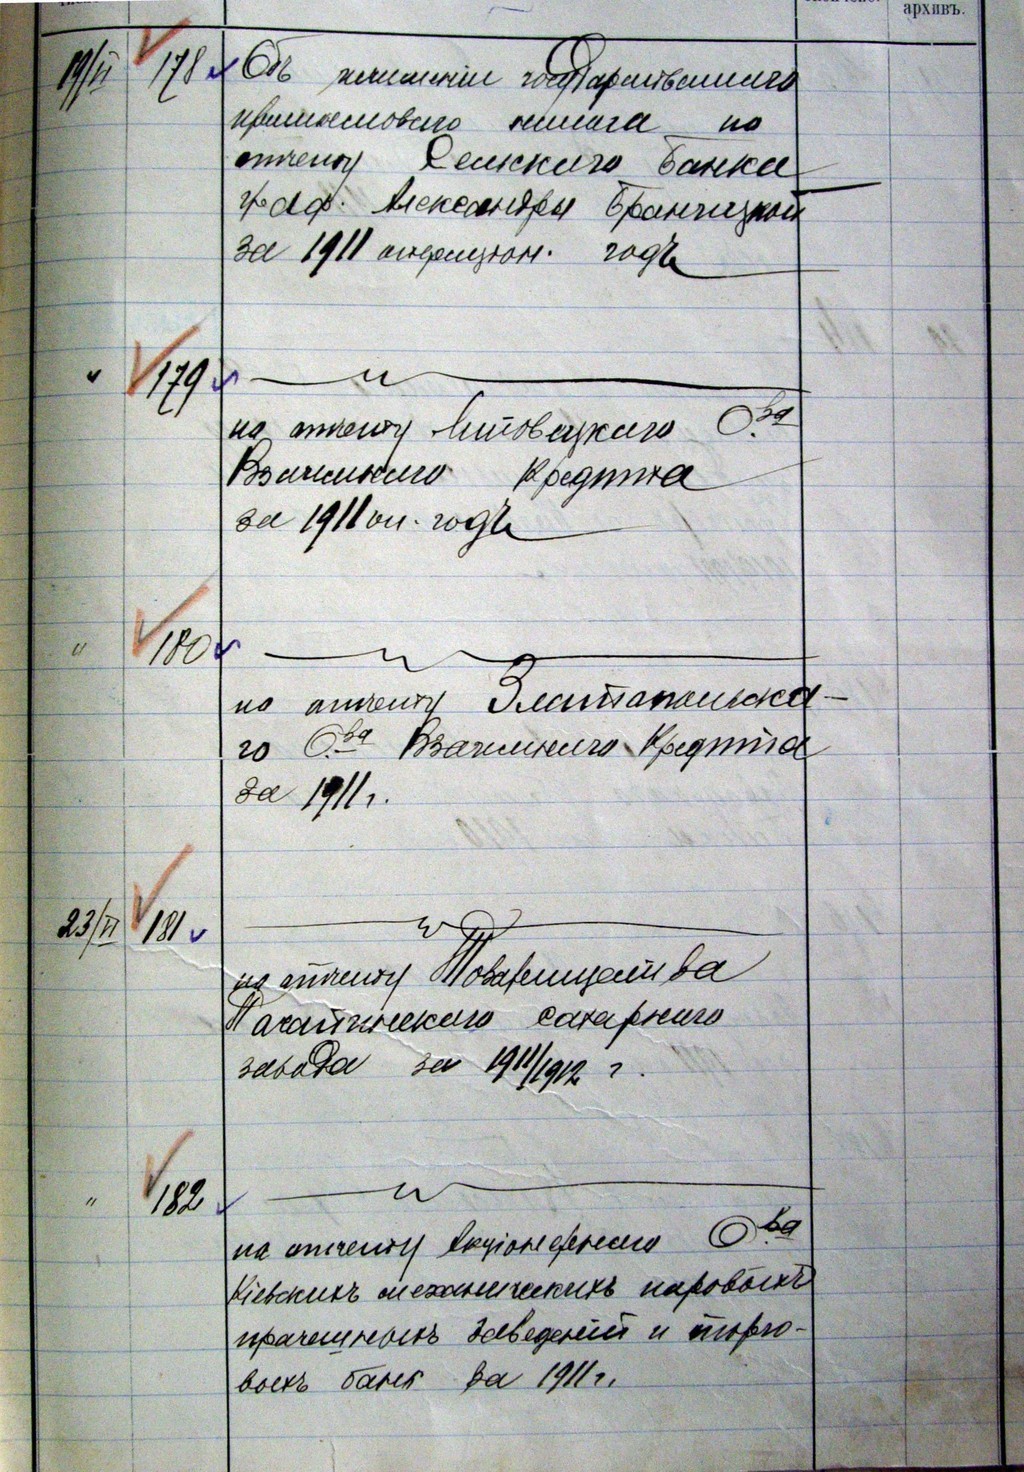 архивъ.
19/II 178 Объ исчисленіи государственнаго
промысловаго налога по
отчету Сельскаго Банка
граф. Александры Браницкой
за 1911 операціон. годъ
" 179 — " —
по отчету Липовецкаго О-ва
Взаимнаго Кредита
за 1911 оп. годъ
" 180 — " —
по отчету Златопольска-
го О-ва Взаимнаго Кредита
за 1911 г.
23/II 181 — " —
по отчету Товарищества
сахарнаго
завода за 1911/1912 г.
" 182 — " —
по отчету Акціонернаго О-ва
Кіевскихъ механическихъ паровыхъ
прачешныхъ заведеній и торго-
выхъ бань за 1911 г.